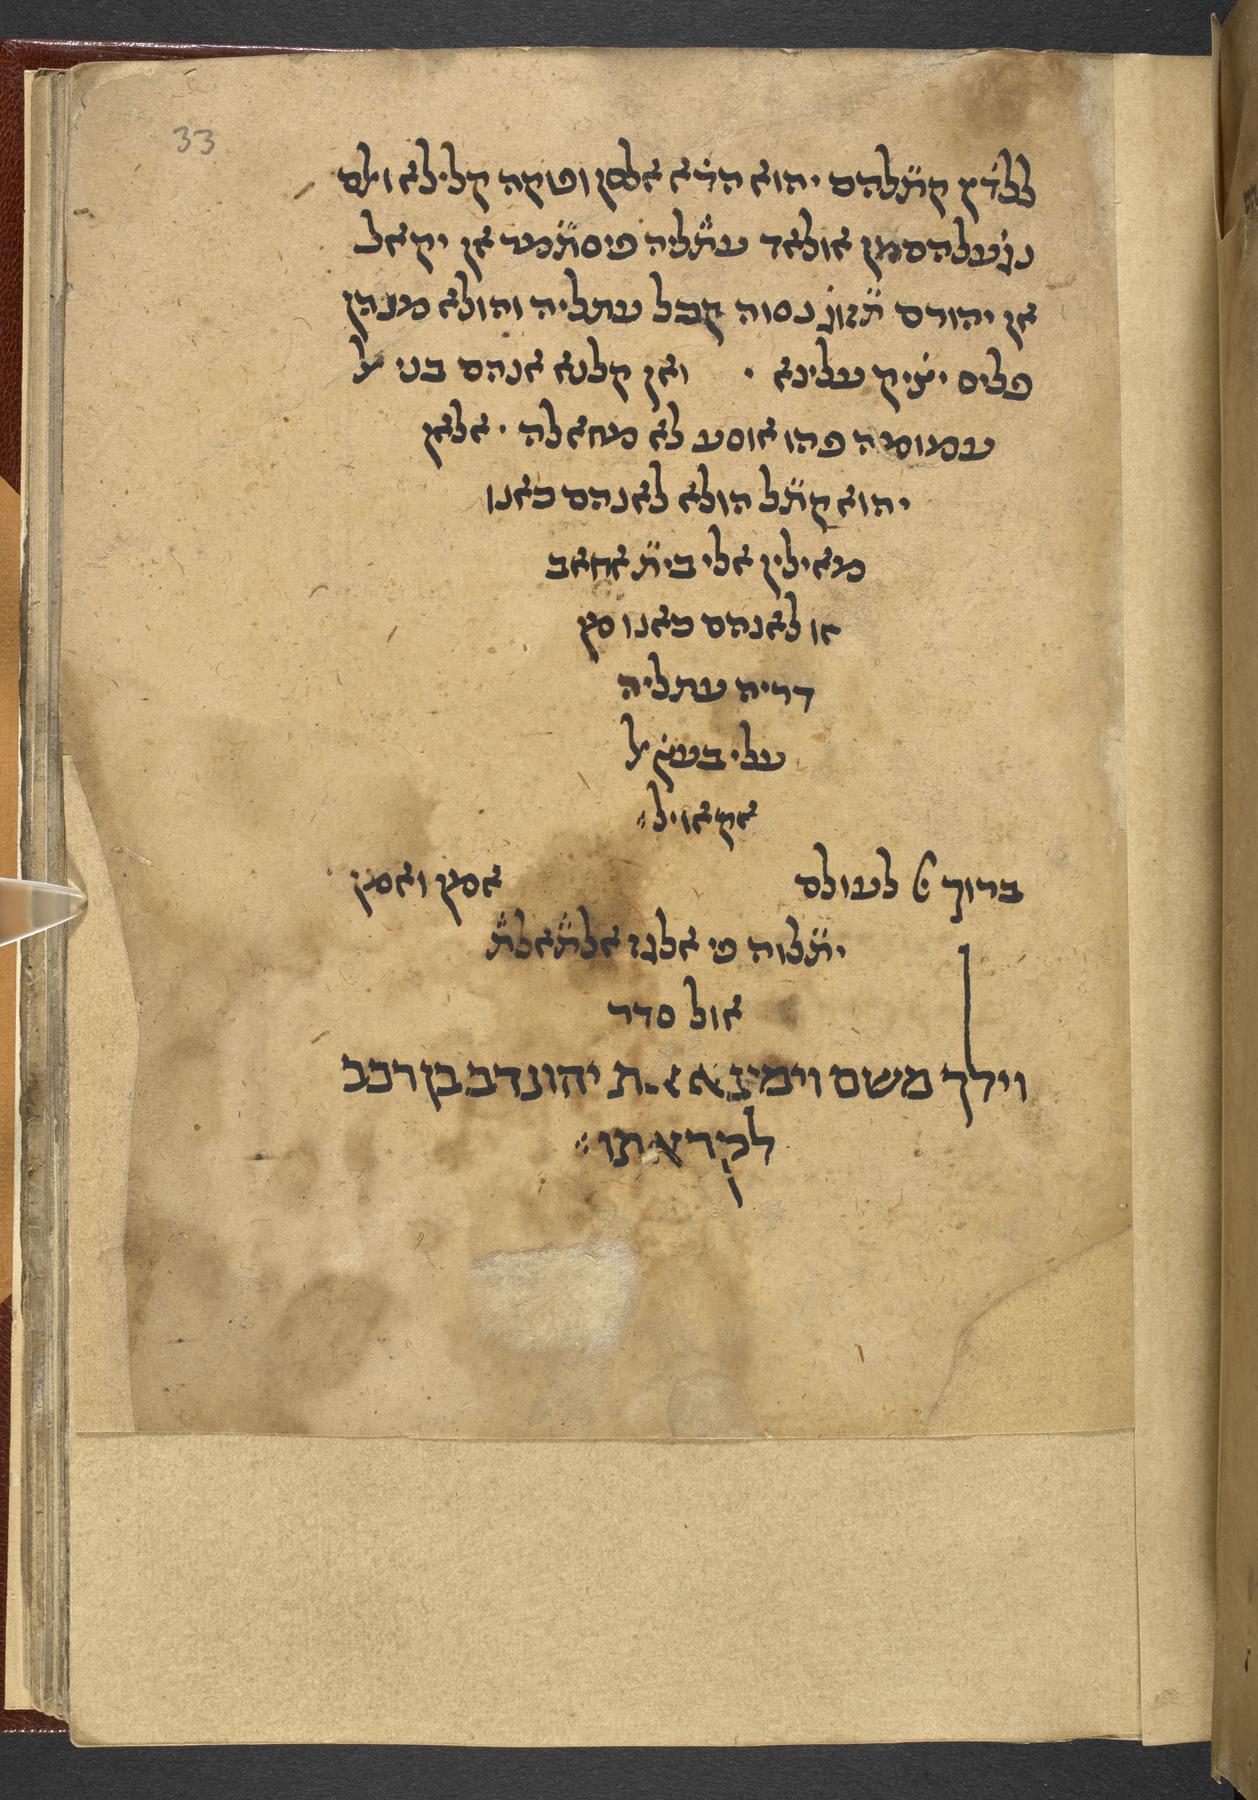 33
ללדׄין קתׄלהם יהוא הדׄא אלסן ופוקה קלילא ולם
נגׄעלהם מן אולאד עתׄליה פיסתׄמר אן יקאל
אן יהורם תׄזוגׄ נסוה קבל עתליה והולא מנהן
פליס יצׄיק עלינא ׳ ואן קלנא אנהם בני אל
עמומה פהו אוסע לא מחאלה ׳ אלאן
יהוא קתׄל הולא לאנהם כאנו
מאילין אלי ביתׄ אחאב
או לאנהם כאנו מן
דריה עתליה
עלי בעץׄ אל
אקאויל
ברוך לעולם אמן ואמן
יתׄלוה פי אלגׄז אלתׄאלתׄ
אול סדר
וילך משם וימצא את יהונדב בן רכב
לקראתו